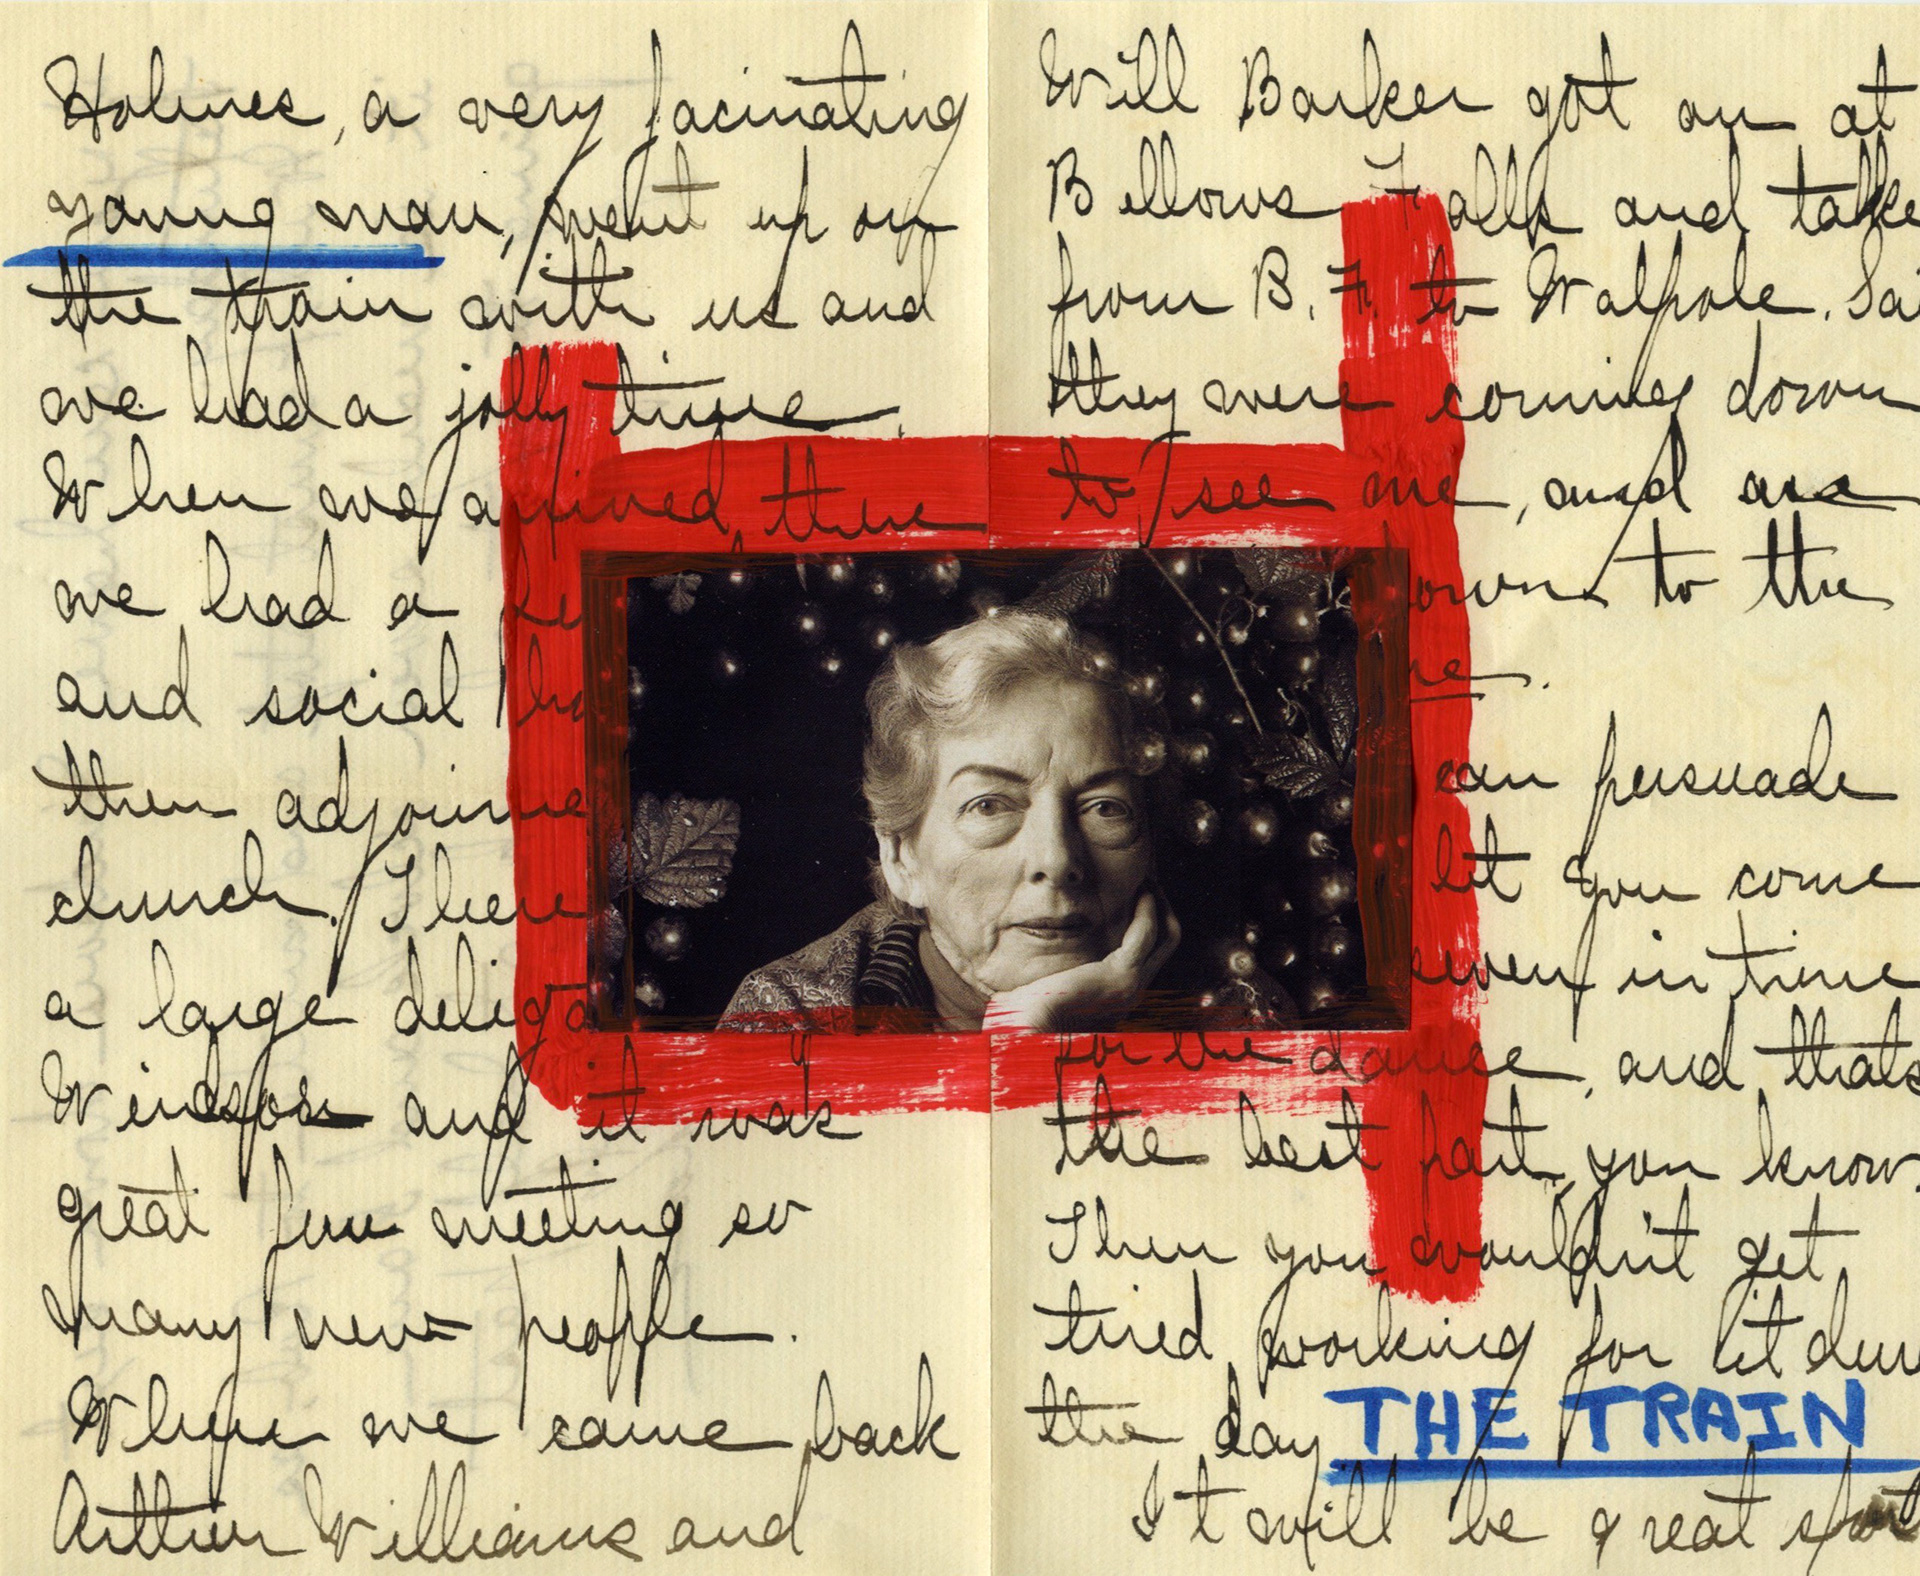 Holmes, a very facinating
young man, went up on
the train with us and
we had a jolly time.
When we arrived there
we had a
and social
then adjourne
church. There
a large deliga
Windsor and it was
great fun meeting so
many new people.
When we came back
Arthur Williams and
Will Barker got on at
Bellows Falls and talke
from B. F. to Walpole. Sai
they were coming down
to see me, and are
down to the
can persuade
let you come
seven in time
for the dance, and thats
the best part, you know.
Then you wouldn't get
tired working for
the day THE TRAIN
It will be great sport